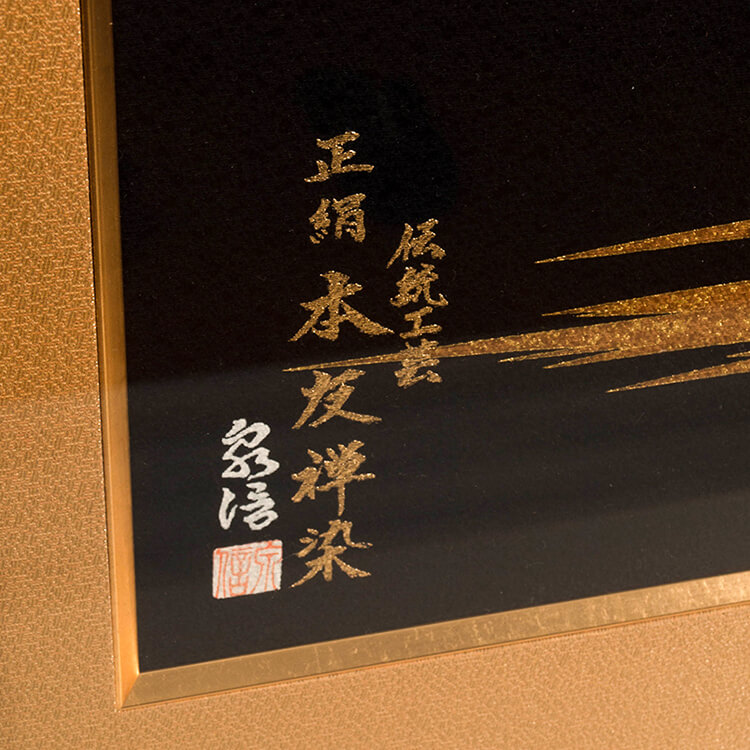 伝統工芸
正絹本友禅染
泉信